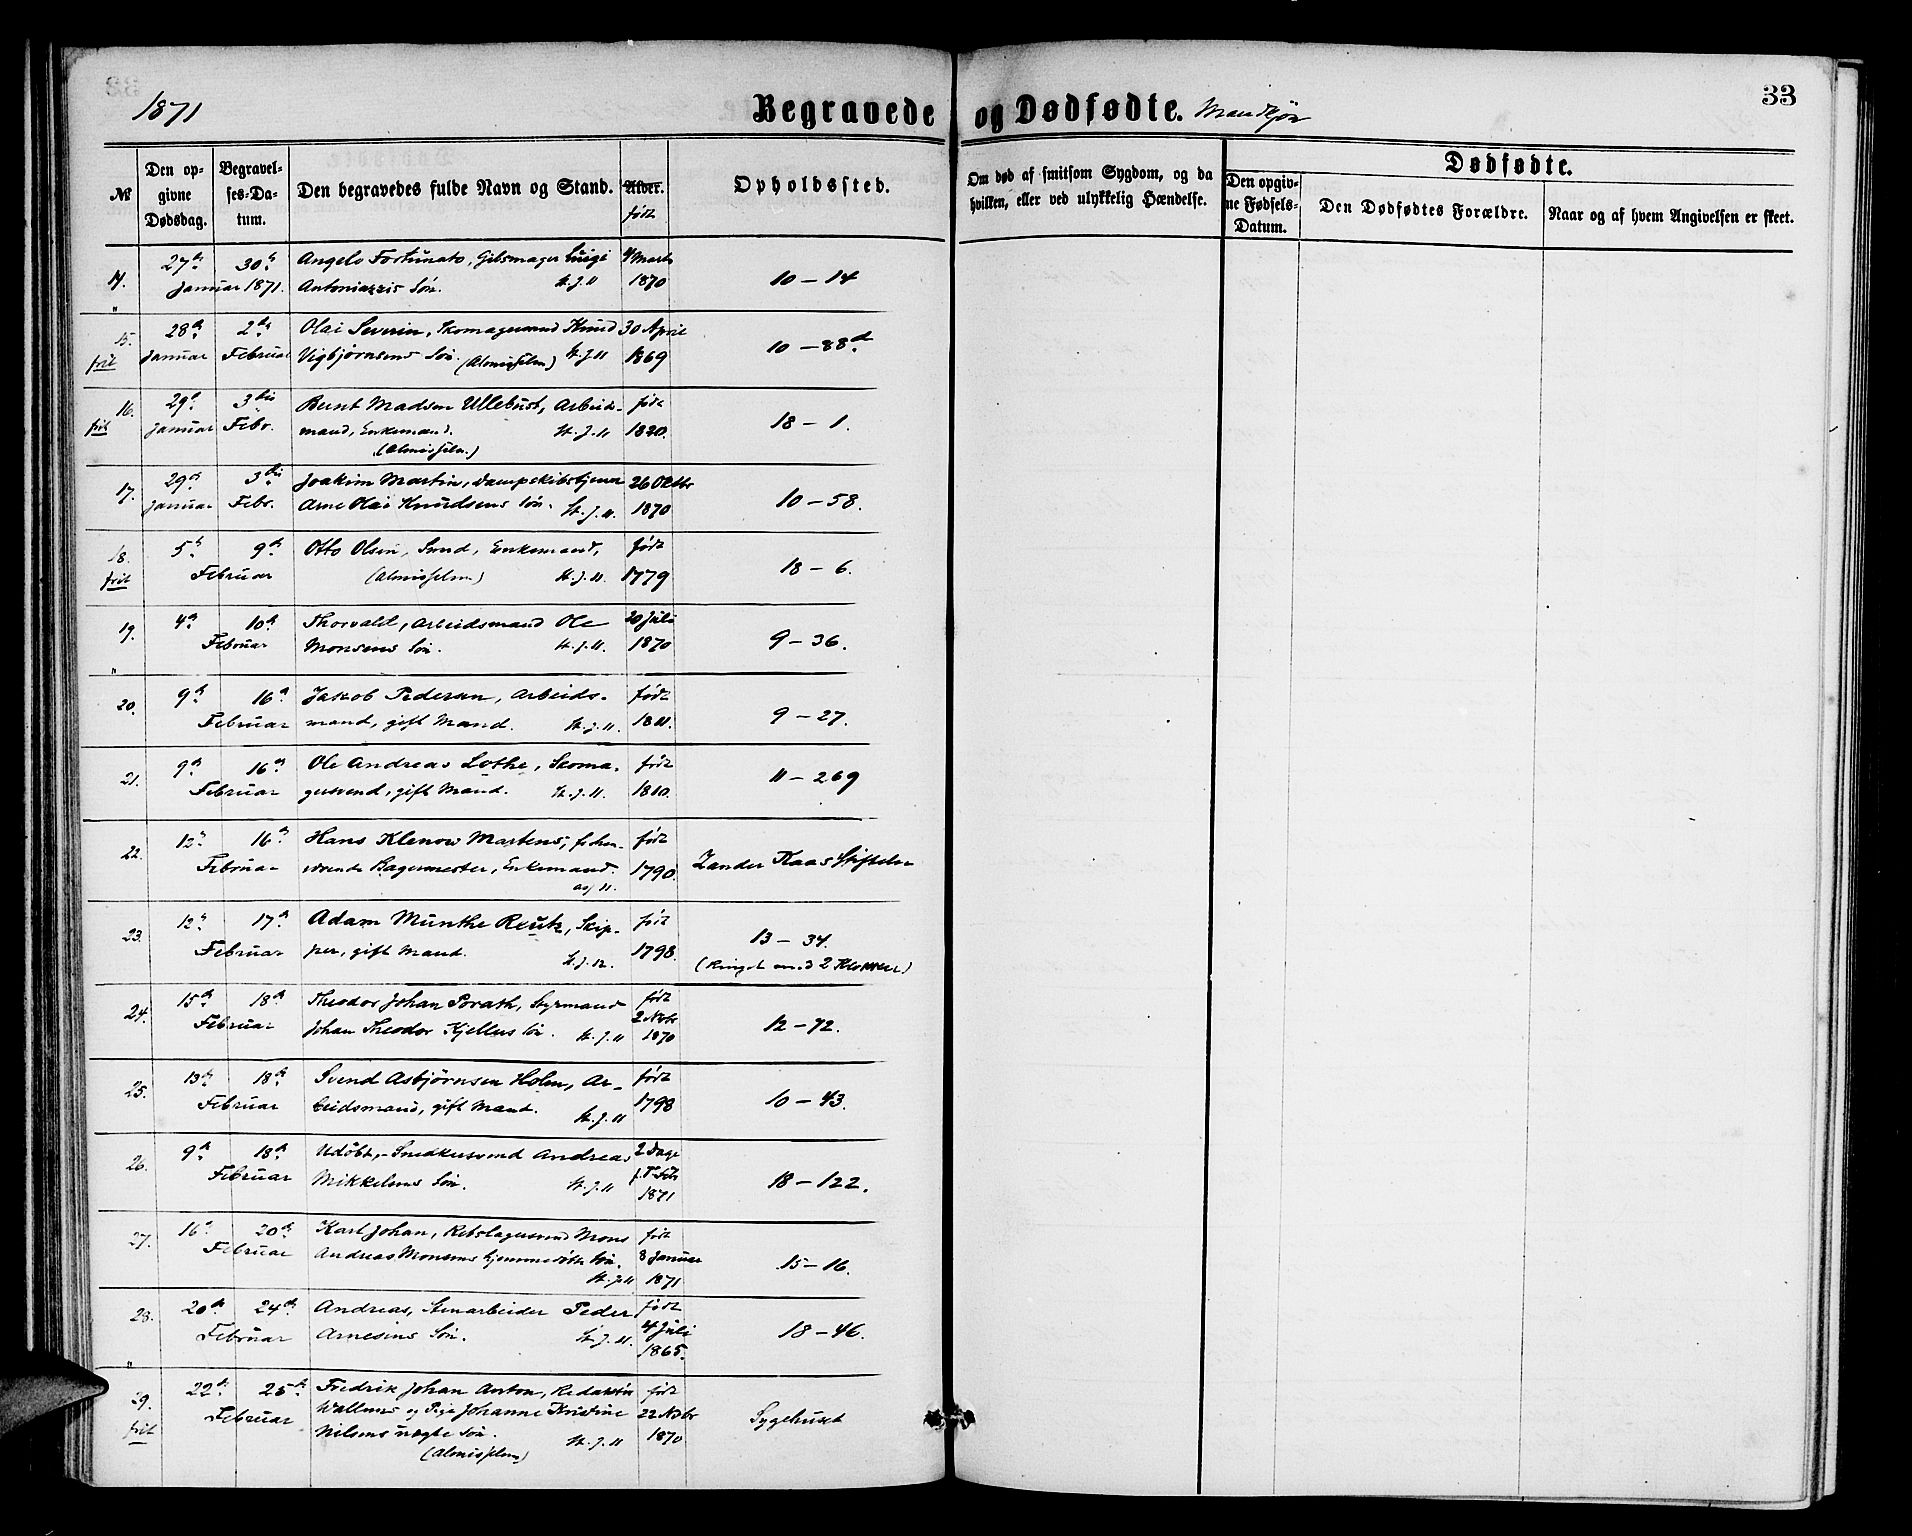 1871
Begravede og Dødfødte. Mandkjøn
33
№
Den opgivne Dødsdag.
Begravelses-Datum.
Den begravedes fulde Navn og Stand.
Alder. født
Opholdssted.
Om død af smitsom Sygdom, og da hvilken, eller ved ulykkelig Hændelse.
Dødfødte.
Den opgivne Fødsels-Datum.
Den Dødfødtes Forældre.
Naar og af hvem Angivelsen er skeet.
27de 30te Angelo Fortunato, Gibsmager Luigi 4 Marts
14. Januar 1871. Antoniazzis Søn. St. J. 11 1870 10 – 14
15. 28de 2den Olai Severin, Skomagersvend Knud 30 April
frit Januar Februar Vigbjørnsens Søn. (Almisselm) St. J. 11 1869 10 – 88d
16. 29de 3die Bernt Madsen Ullebust, Arbeids- født
frit Januar Febr. mand, Enkemand. St. J. 11 1820. 18 – 1.
(Almisselm.)
17. 29de 3die Joakim Martin, Dampskibstjener 26 Oktbr
Januar Febr. Arne Olai Knudsens Søn. St. J. 11. 1870 10 – 58.
18. 5te 9de Otto Olsen, Enkemand, født
frit Februar (Almisselm) St. J. 11. 1779 18 – 6.
19. 4de 10de Thorvald, Arbeidsmand Ole 20 Juli
Februar Monsens Søn. St. J. 11. 1870 9 – 36.
20. 9de 16de Jakob Pedersen, Arbeids- født
Februar mand, gift Mand. St. J. 11. 1811. 9 – 27.
21. 9de 16de Ole Andreas Lothe, Skoma- født
Februar gersvend, gift Mand. St. J. 11. 1810. 11 – 269
22. 12te 16de Hans Klenow Martens, forhen- født
Februar værende Bagermester, Enkemand. 11. 1790. Zander Kaas Stiftelse
23. 12te 17de Adam Munthe Reutz, Skip- født
Februar per, gift Mand. St. J. 12. 1798. 13 – 34.
(Ringet med 2 Klokker)
24. 15de 18de Theodor Johan Porath, Styrmand født
Februar Johan Theodor Kjellers Søn. St. J. 11 2 Novbr 1870 12 – 72.
25. 13de 18de Svend Asbjørnsen Holm, Ar- født
Februar beidsmand, gift Mand. St. J. 11 1798 10 – 43.
26. 9de 18de Udøbt, Snedkersvend Andreas 2 Dage
Februar Mikkelsens Søn. St. J. 11 f. 7 Feb 1871 18 – 122.
27. 16de 20de Karl Johan, Rebslagersvend Mons født
Februar Andreas Monsens hjemmedøbte Søn. 8 Januar 15 – 16.
St. J. 11 1871
28. 20de 24de Andreas, Stenarbeider Peder født
Februar Arnesens Søn. St. J. 11. 4 Juli 1865. 18 – 46.
29. 22de 25de Fredrik Johan Anton, Redaktør født
frit Februar Wallems og Pige Johanne Kristine 22 Novbr Sygehuset
Nilsens uægte Søn. St. J. 11 1870
(Almisselem)